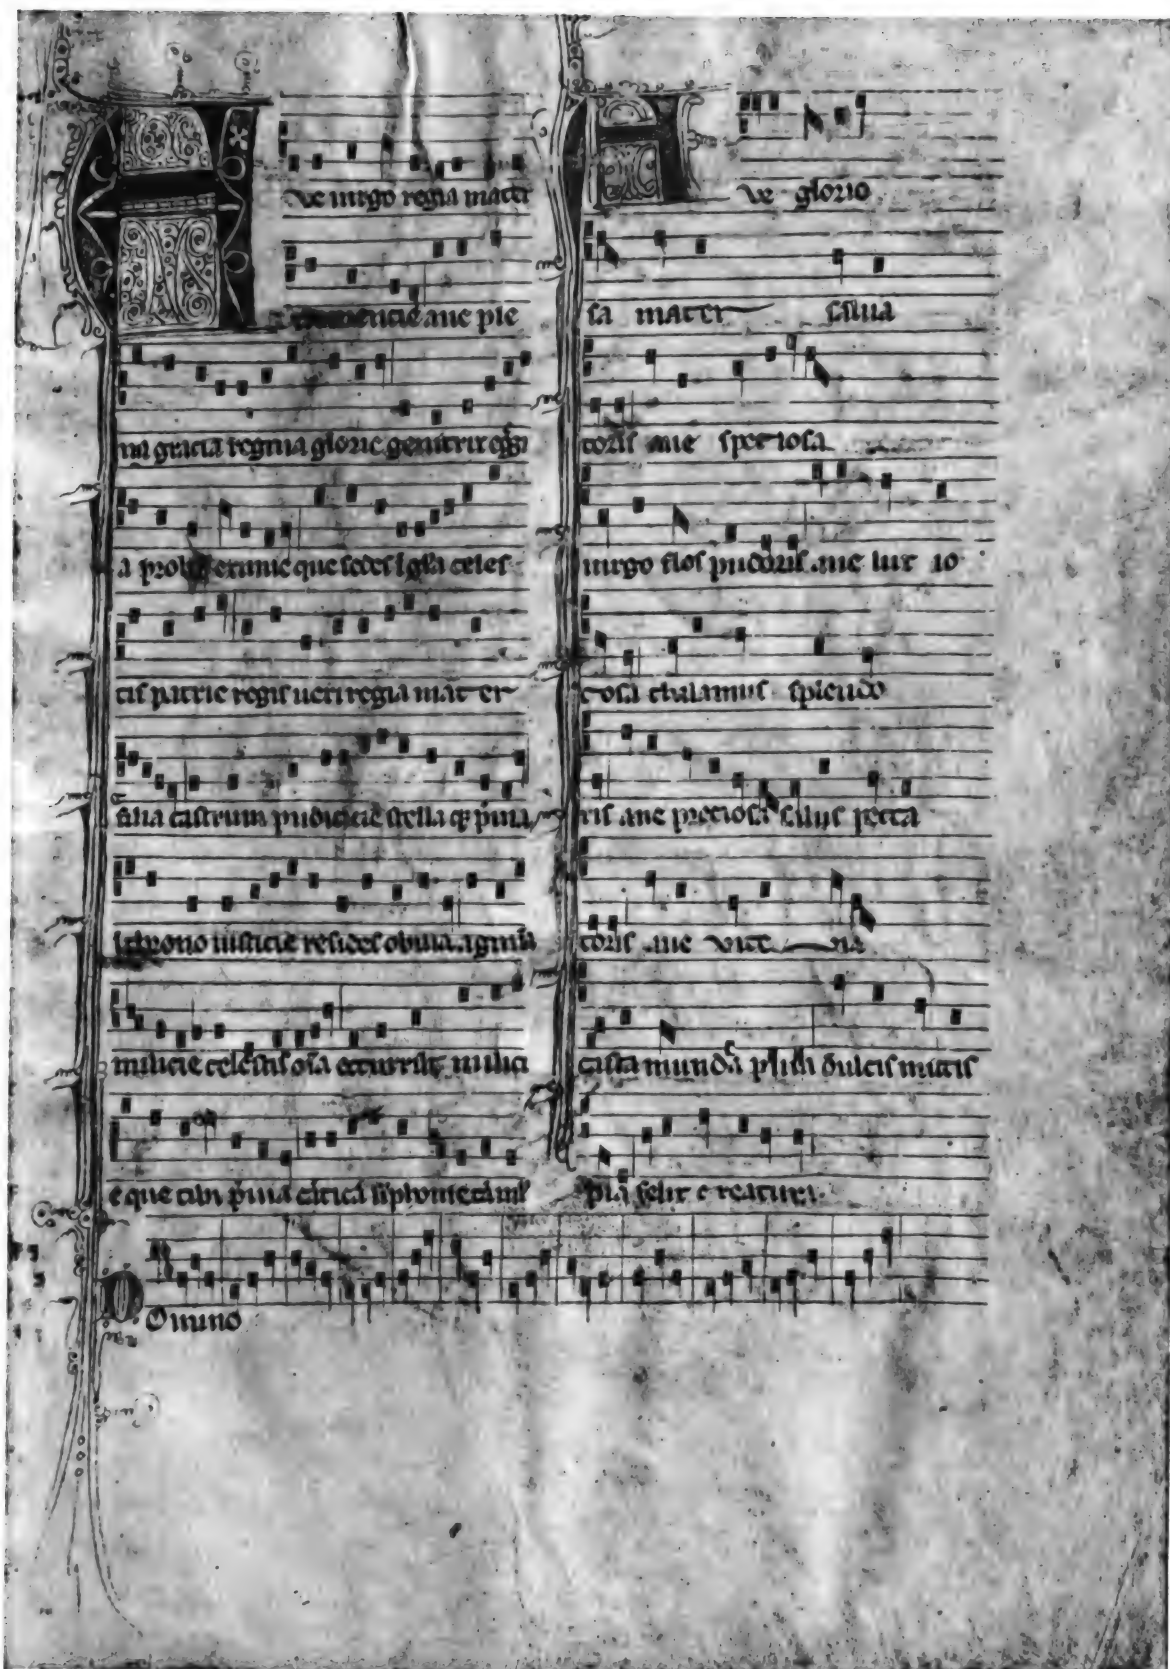 Ave uirgo regia mater
clemencie aue ple
na gracia regina glorie genitrix
a prolis eximie que sedes i gl'a celes
tis patrie regis ueri regia mater
filia castrum pudicicie stella q
i throno iusticie resides obuia agmīa
milicie celestis oīa occurrūt milici
e que tibi
Ave glorio
sa mater salua
toris aue speciosa
uirgo flos pudoris aue lux io
cosa thalamus splendo
ris aue preciosa salus pecca
toris aue uite uia
casta munda pura dulcis mitis
pia felix creatura.
Domino